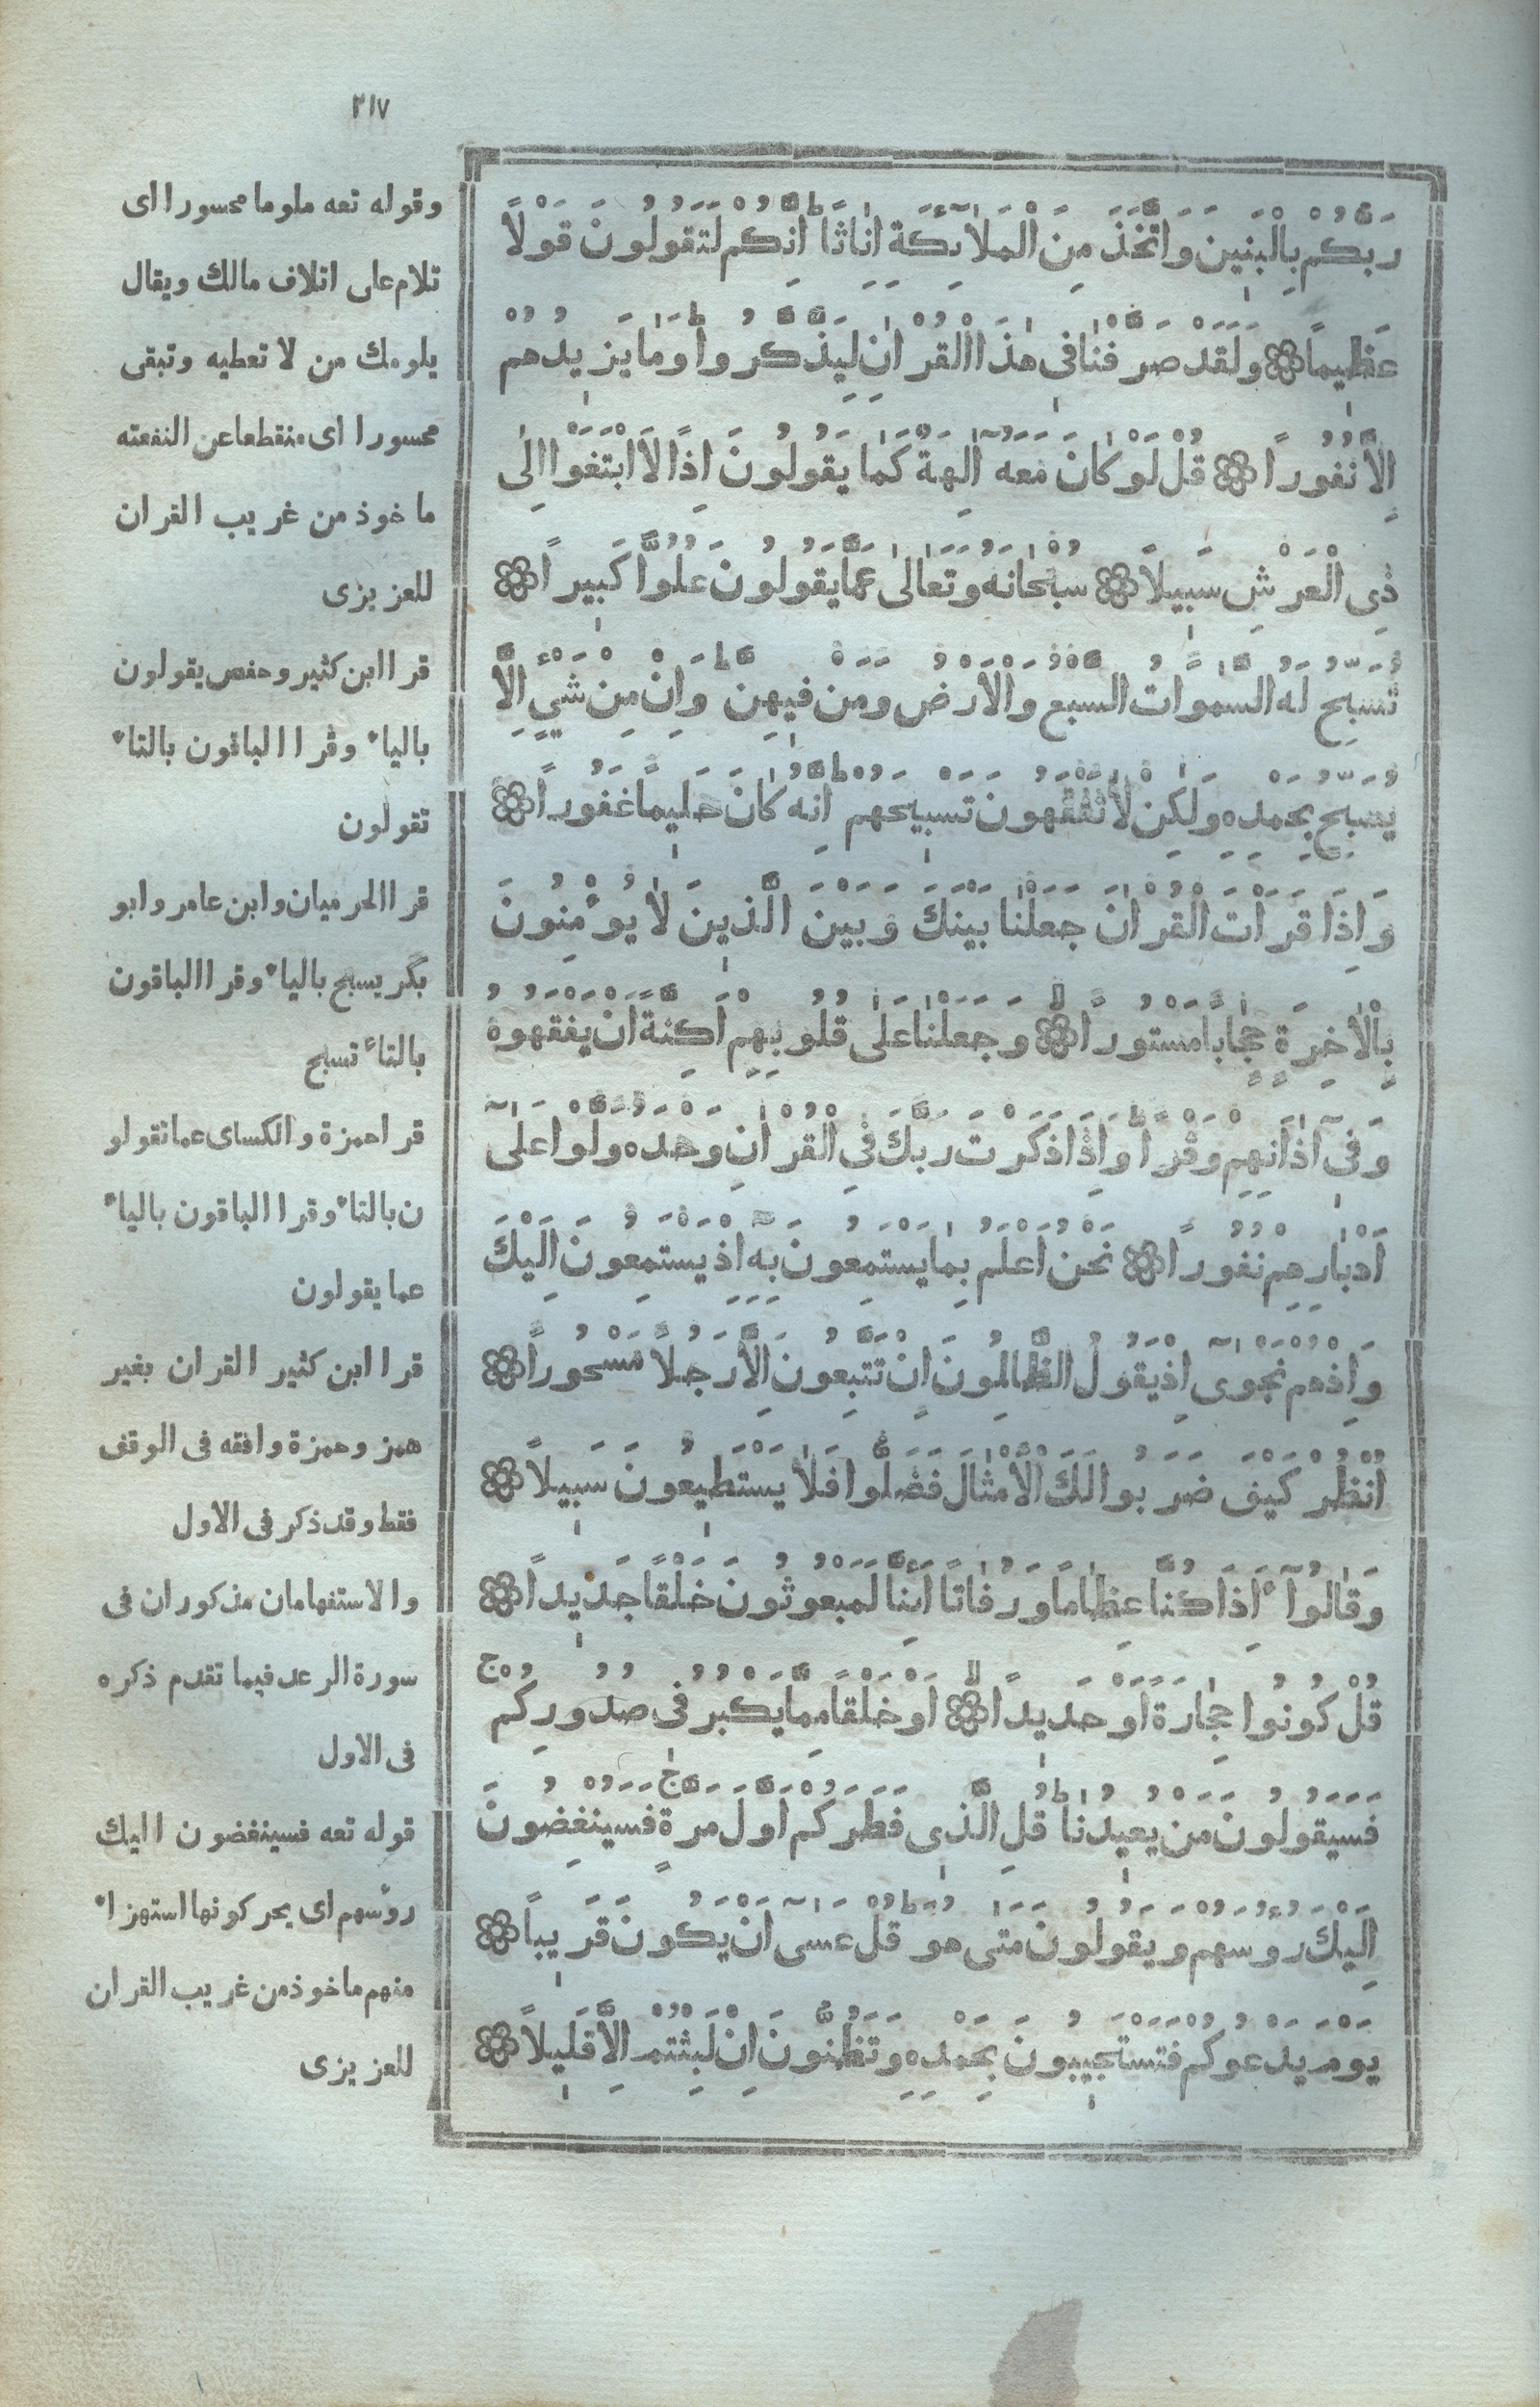 ٢١٧
رَبُّكُمْ بِالْبَنِينَ وَاتَّخَذَ مِنَ الْمَلٰٓئِكَةِ اِنَاثًا ط اِنَّكُمْ لَتَقُولُونَ قَوْلاً
عَظِيمًا ۝ وَلَقَدْ صَرَّفْنٰا فِى هٰذَا الْقُرْاٰنِ لِيَذَّكَّرُوا ط وَمٰا يَزِيدُهُمْ
اِلاَّ نُفُورًا ۝ قُلْ لَوْ كٰانَ مَعَهُٓ اٰلِهَةٌ كَمٰا يَقُولُونَ اِذًا لاَابْتَغَوْا اِلٰى
ذِى الْعَرْشِ سَبِيلاً ۝ سُبْحٰانَهُ وَتَعٰالٰى عَمَّا يَقُولُونَ عُلُوًّا كَبِيرًا ۝
تُسَبِّحُ لَهُ السَّمٰوَاتُ السَّبْعُ وَالْاَرْضُ وَمَنْ فِيهِنَّ ط وَاِنْ مِنْ شَيْءٍ اِلاَّ
يُسَبِّحُ بِحَمْدِهِ وَلٰكِنْ لاٰ تَفْقَهُونَ تَسْبِيحَهُمْ ط اِنَّهُ كٰانَ حَلِيمًا غَفُورًا ۝
وَاِذَا قَرَاْتَ الْقُرْاٰنَ جَعَلْنٰا بَيْنَكَ وَبَيْنَ الَّذِينَ لاٰ يُؤْمِنُونَ
بِالْاٰخِرَةِ حِجٰابًا مَسْتُورًا ۝ وَجَعَلْنٰا عَلٰى قُلُوبِهِمْ اَكِنَّةً اَنْ يَفْقَهُوهُ
وَفِىٓ آذٰانِهِمْ وَقْرًا ط وَاِذَا ذَكَرْتَ رَبَّكَ فِى الْقُرْاٰنِ وَحْدَهُ وَلَّوْا عَلٰىٓ
اَدْبٰارِهِمْ نُفُورًا ۝ نَحْنُ اَعْلَمُ بِمٰا يَسْتَمِعُونَ بِهِٓ اِذْ يَسْتَمِعُونَ اِلَيْكَ
وَاِذْ هُمْ نَجْوٰىٓ اِذْ يَقُولُ الظّٰالِمُونَ اِنْ تَتَّبِعُونَ اِلاَّ رَجُلاً مَسْحُورًا ۝
اُنْظُرْ كَيْفَ ضَرَبُوا لَكَ الْاَمْثٰالَ فَضَلُّوا فَلاٰ يَسْتَطِيعُونَ سَبِيلاً ۝
وَقٰالُوآ ءَاِذَا كُنَّا عِظٰامًا وَرُفٰاتًا اَئِنَّا لَمَبْعُوثُونَ خَلْقًا جَدِيدًا ۝
قُلْ كُونُوا حِجٰارَةً اَوْ حَدِيدًا ۝ اَوْ خَلْقًا مِمَّا يَكْبُرُ فِى صُدُورِكُمْ ج
فَسَيَقُولُونَ مَنْ يُعِيدُنٰا ط قُلِ الَّذِى فَطَرَكُمْ اَوَّلَ مَرَّةٍ ج فَسَيُنْغِضُونَ
اِلَيْكَ رُؤُسَهُمْ وَيَقُولُونَ مَتٰى هُوَ ط قُلْ عَسٰىٓ اَنْ يَكُونَ قَرِيبًا ۝
يَوْمَ يَدْعُوكُمْ فَتَسْتَجِيبُونَ بِحَمْدِهِ وَتَظُنُّونَ اِنْ لَبِثْتُمْ اِلاَّ قَلِيلاً ۝
وقوله تعه ملوما محسورا اى
تلام على اتلاف مالك ويقال
يلومك من لا تعطيه وتبقى
محسورا اى منقطعا عن النفعته
ماخوذ من غريب القران
للعزيزى
قرا ابن كثير وحفص يقولون
بالياء وقرا الباقون بالتاء
تقولون
قرا الحرميان وابن عامر وابو
بكر يسبح بالياء وقرا الباقون
بالتاء تسبح
قرا حمزة والكساى عما تقولو
ن بالتاء وقرا الباقون بالياء
عما يقولون
قرا ابن كثير القران بغير
همز وحمزة وافقه فى الوقف
فقط وقد ذكر فى الاول
والاستفهامان مذكوران فى
سورة الرعد فيما تقدم ذكره
فى الاول
قوله تعه فسينغضون اليك
روٴسهم اى يحركونها استهزاء
منهم ماخوذ من غريب القران
للعزيزى